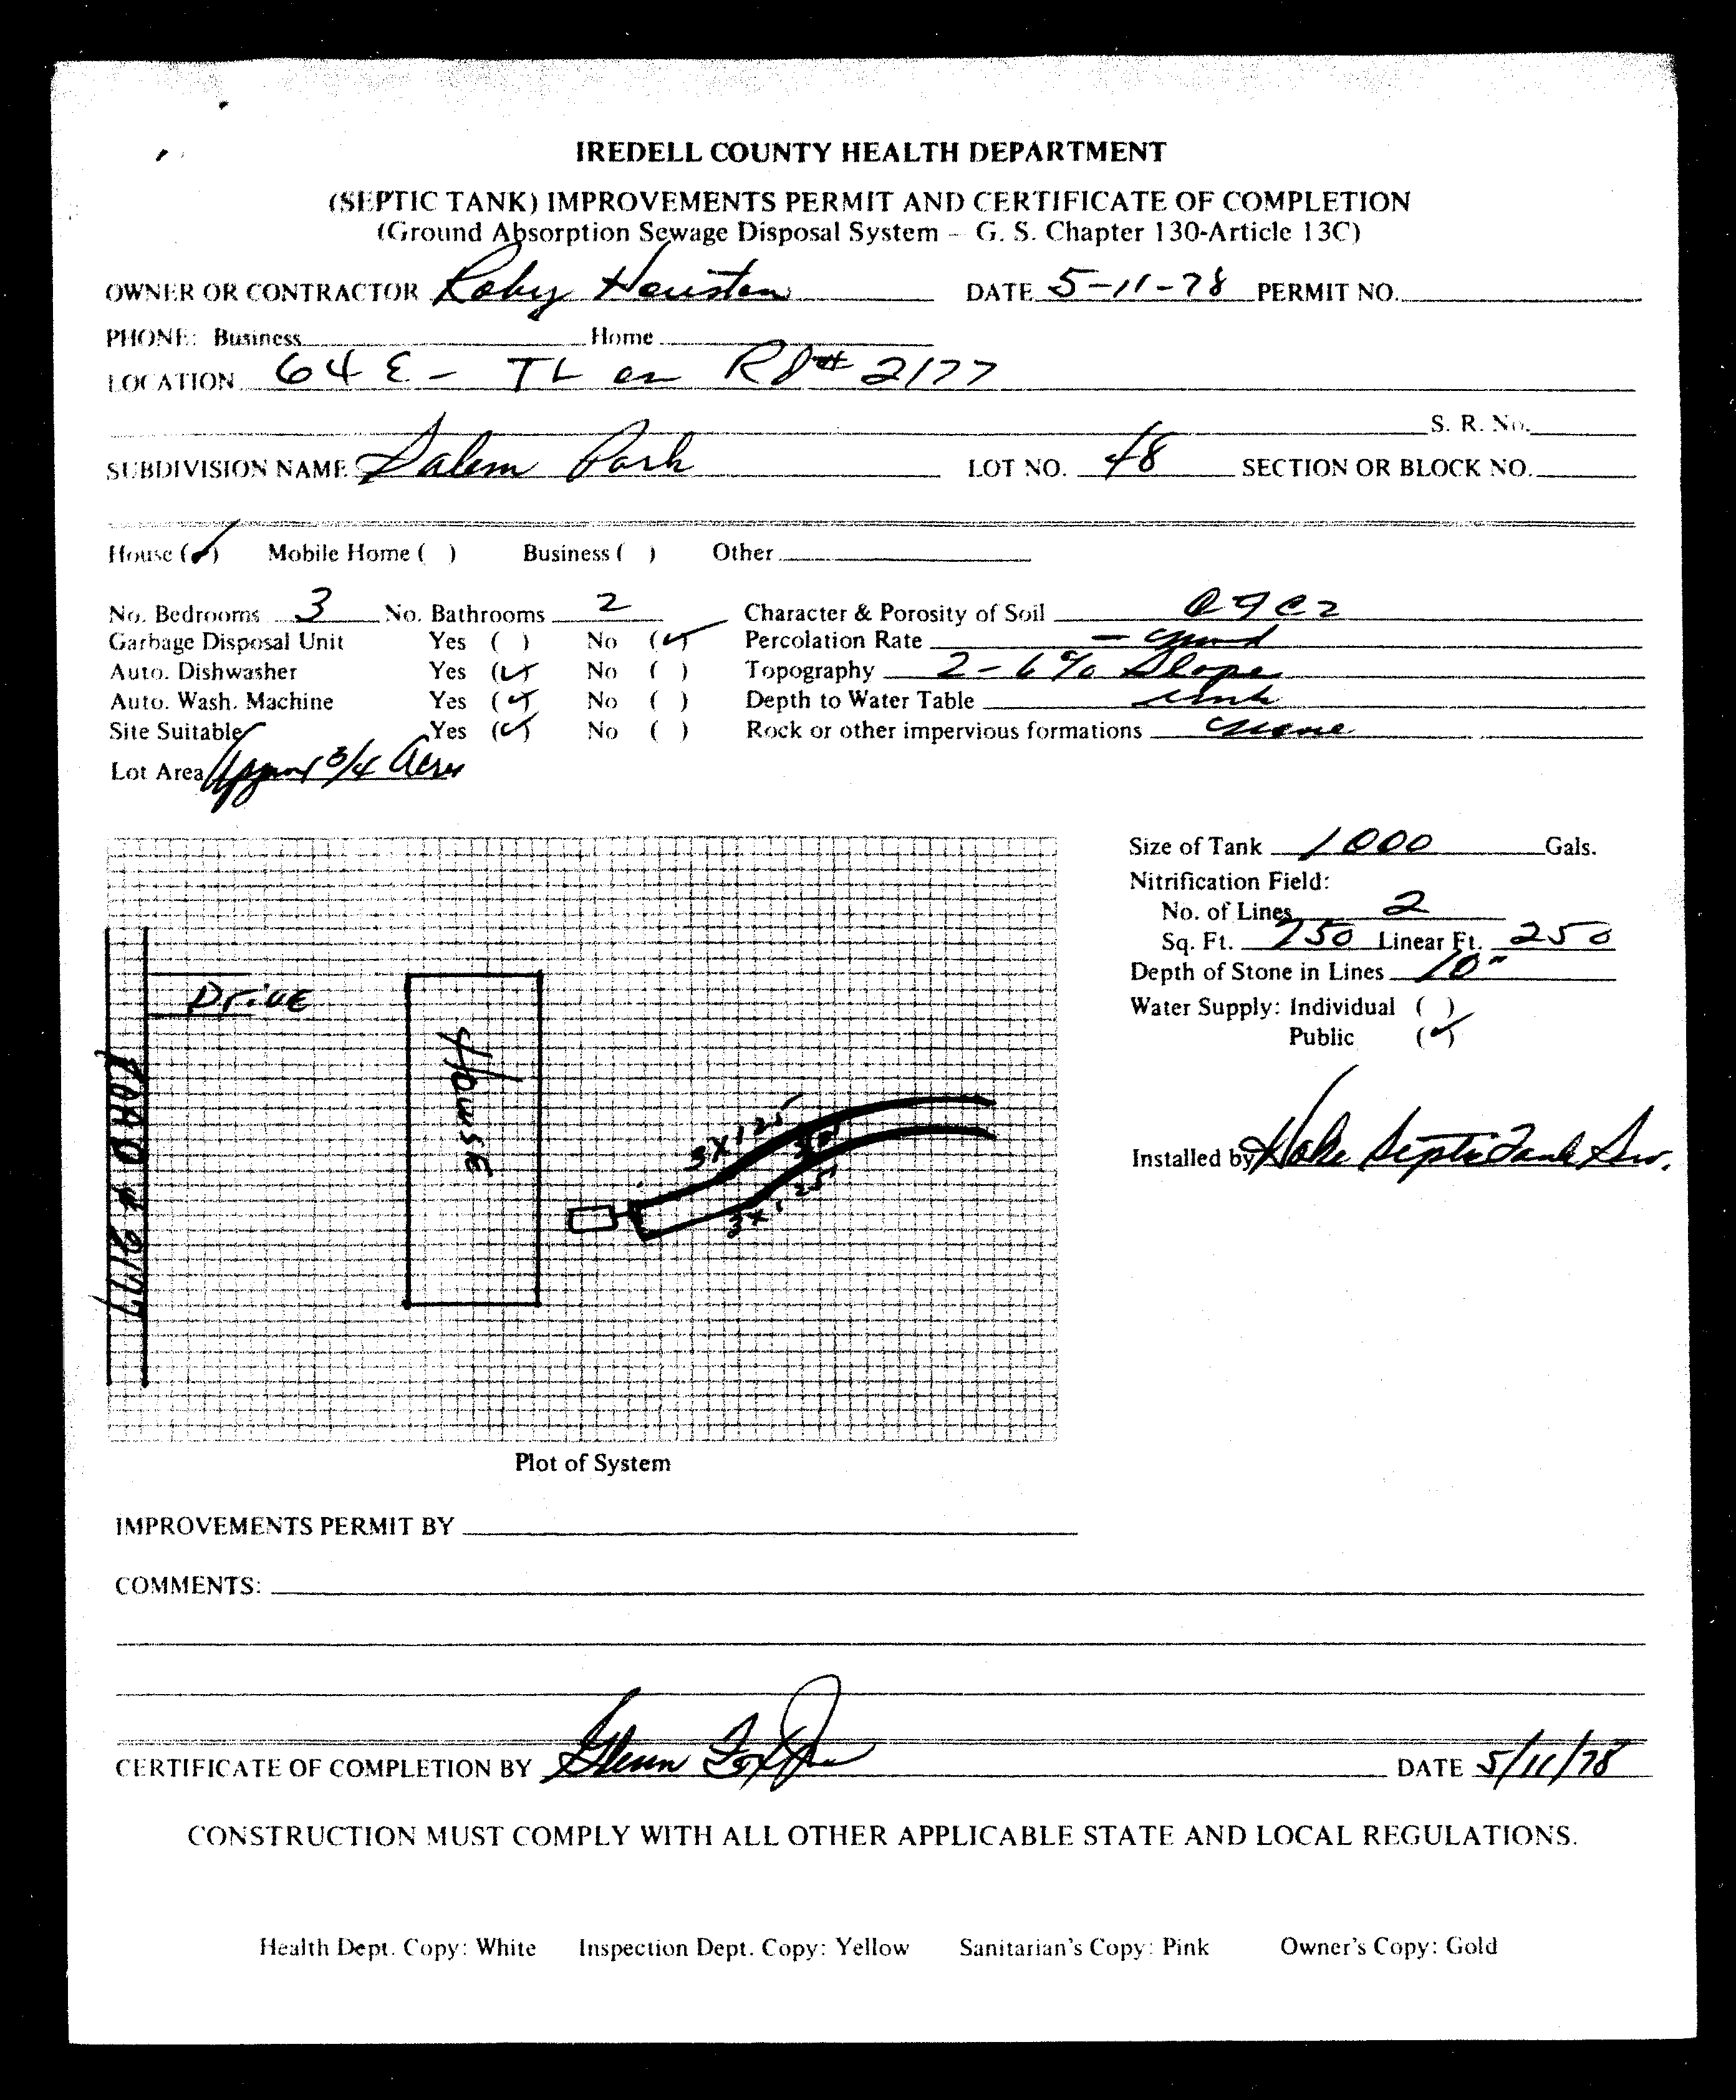 IREDELL COUNTY HEALTH DEPARTMENT
(SEPTIC TANK) IMPROVEMENTS PERMIT AND CERTIFICATE OF COMPLETION
(Ground Absorption Sewage Disposal System – G. S. Chapter 130-Article 13C)
OWNER OR CONTRACTOR Roby Houston DATE 5-11-78 PERMIT NO.
PHONE: Business Home
LOCATION 64 E - TL on Rd# 2177
S. R. No.
SUBDIVISION NAME Salem Park LOT NO. 48 SECTION OR BLOCK NO.
House (✓) Mobile Home ( ) Business ( ) Other
No. Bedrooms 3 No. Bathrooms 2 Character & Porosity of Soil
Garbage Disposal Unit Yes ( ) No (✓) Percolation Rate - good
Auto. Dishwasher Yes (✓) No ( ) Topography 2-6% Slope
Auto. Wash. Machine Yes (✓) No ( ) Depth to Water Table unk
Site Suitable Yes (✓) No ( ) Rock or other impervious formations none
Lot Area Approx 3/4 Acre
Size of Tank 1000 Gals.
Nitrification Field:
No. of Lines 2
Sq. Ft. 750 Linear Ft. 250
Depth of Stone in Lines 10"
Water Supply: Individual ( )
Public (✓)
Installed by Septic Tank Ser.
Drive
House
ROAD # 2177
3 X 125'
3 X 125'
Plot of System
IMPROVEMENTS PERMIT BY
COMMENTS:
CERTIFICATE OF COMPLETION BY Glenn DATE 5/11/78
CONSTRUCTION MUST COMPLY WITH ALL OTHER APPLICABLE STATE AND LOCAL REGULATIONS.
Health Dept. Copy: White Inspection Dept. Copy: Yellow Sanitarian's Copy: Pink Owner's Copy: Gold